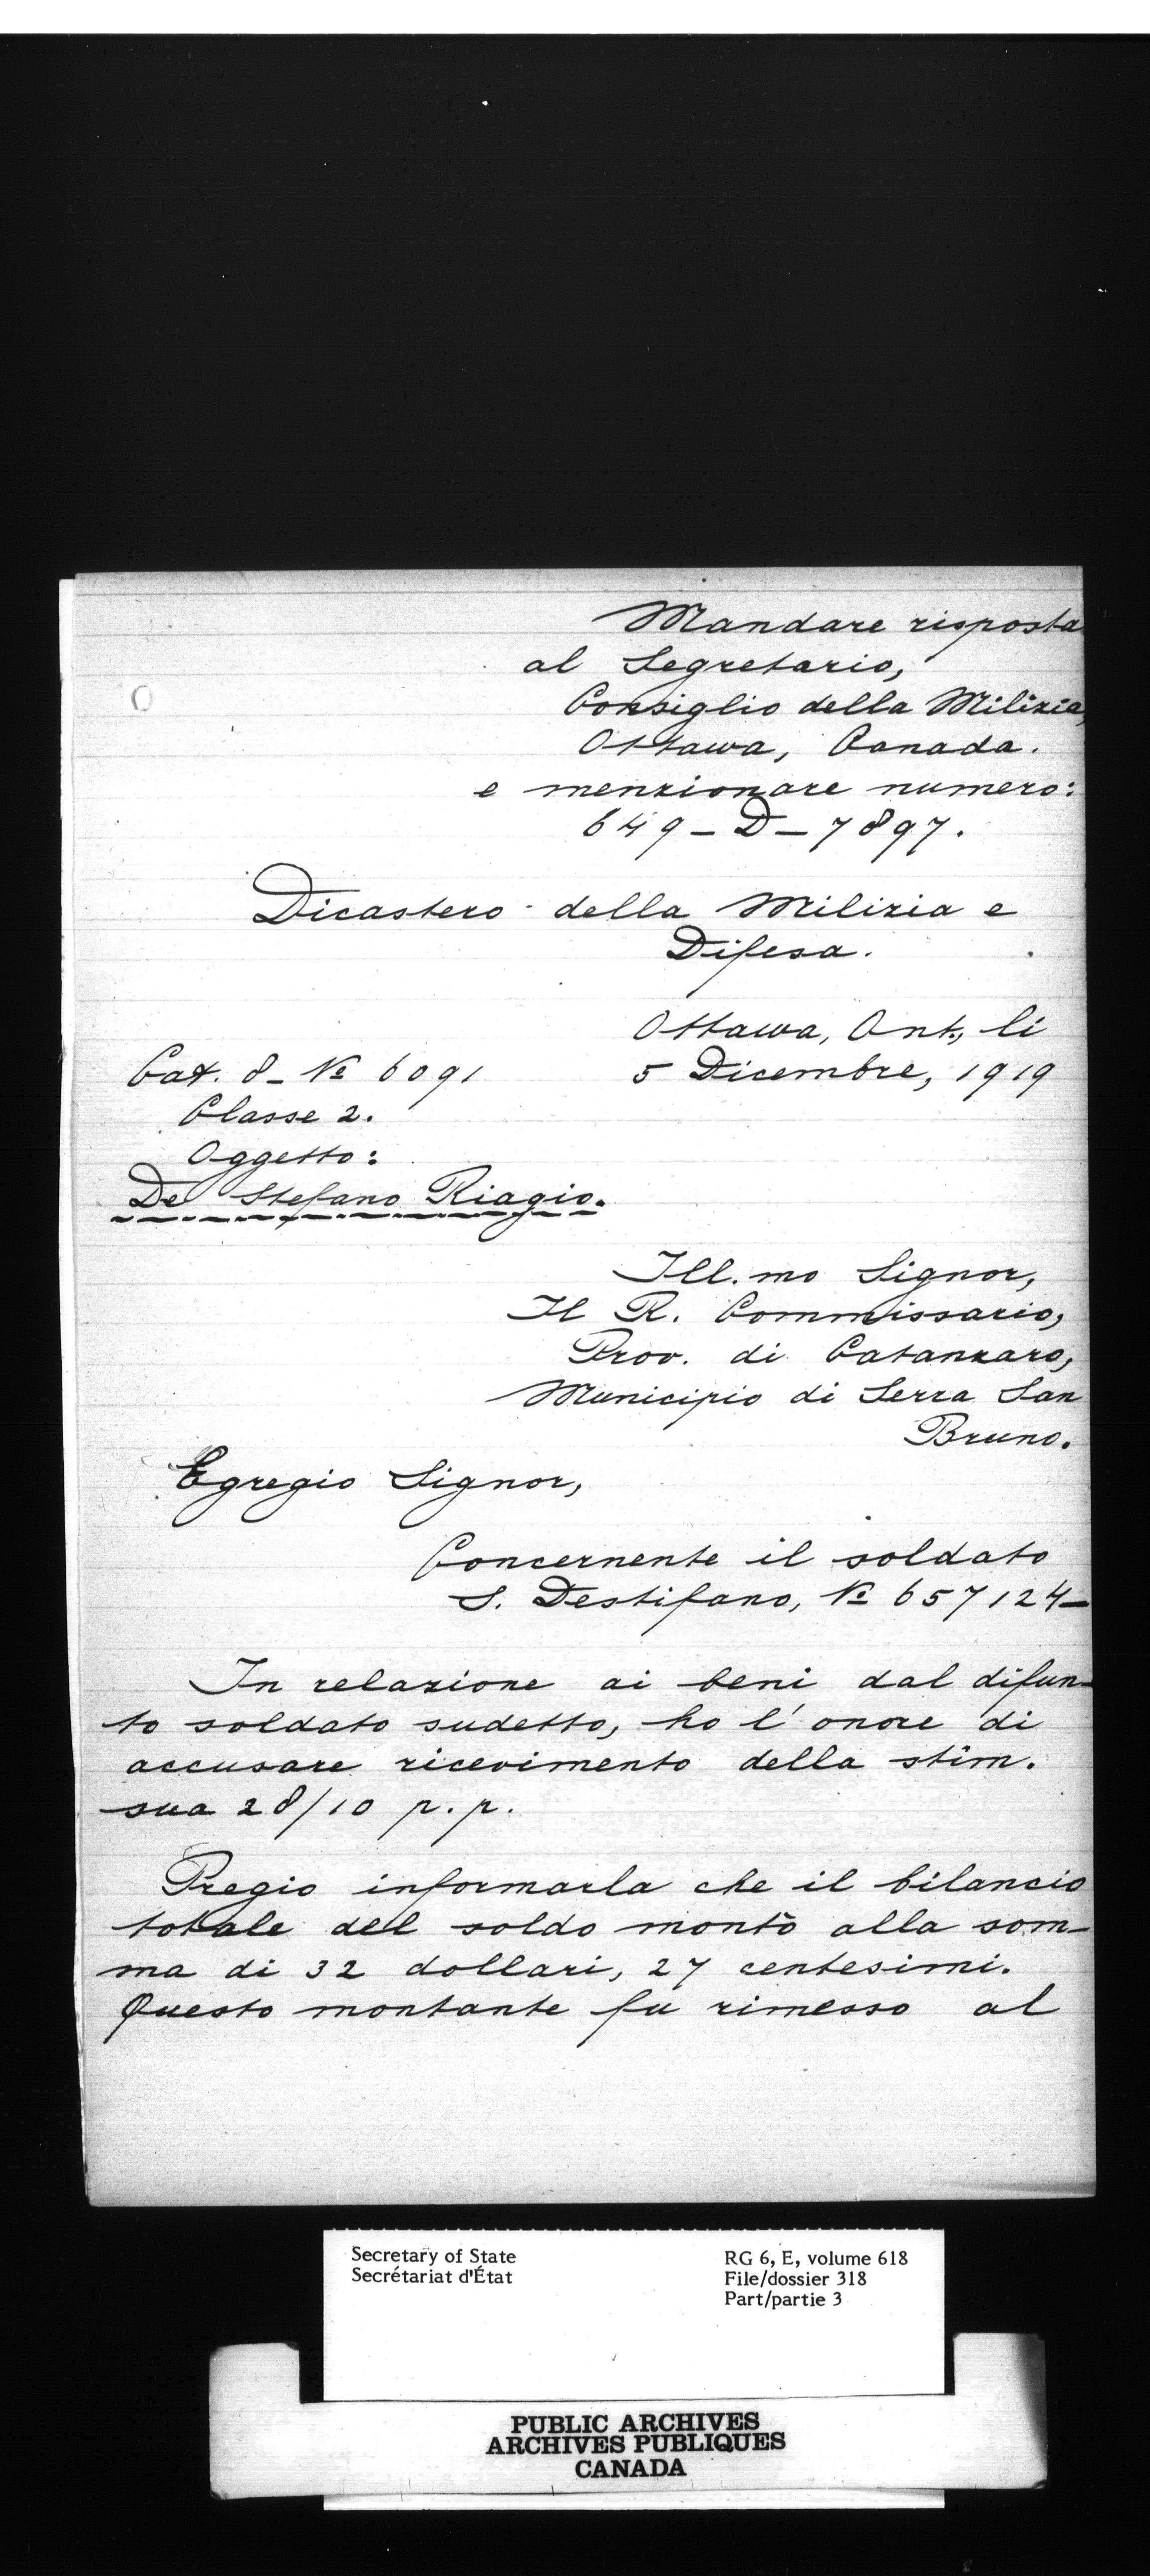 Mandare risposta
al Segretario,
Consiglio della Milizia,
Ottawa, Canada.
e menzionare numero:
649-D-7897.
Dicastero della Milizia e
Difesa.
Ottawa, Ont., li
5 Dicembre, 1919
Cat. 8 - No 6091
Classe 2.
Oggetto:
De Stefano Riagio.
Ill.mo Signor,
Il R. Commissario,
Prov. di Catanzaro,
Municipio di Serra San
Bruno.
Egregio Signor,
Concernente il soldato
S. Destifano, No 657124-
In relazione ai beni dal difun-
to soldato sudetto, ho l'onore di
accusare ricevimento della stim.
sua 28/10 p.p.
Pregio informarla che il bilancio
totale del soldo montò alla som-
ma di 32 dollari, 27 centesimi.
Questo montante fu rimesso al
Secretary of State
Secrétariat d'État
RG 6, E, volume 618
File/dossier 318
Part/partie 3
PUBLIC ARCHIVES
ARCHIVES PUBLIQUES
CANADA